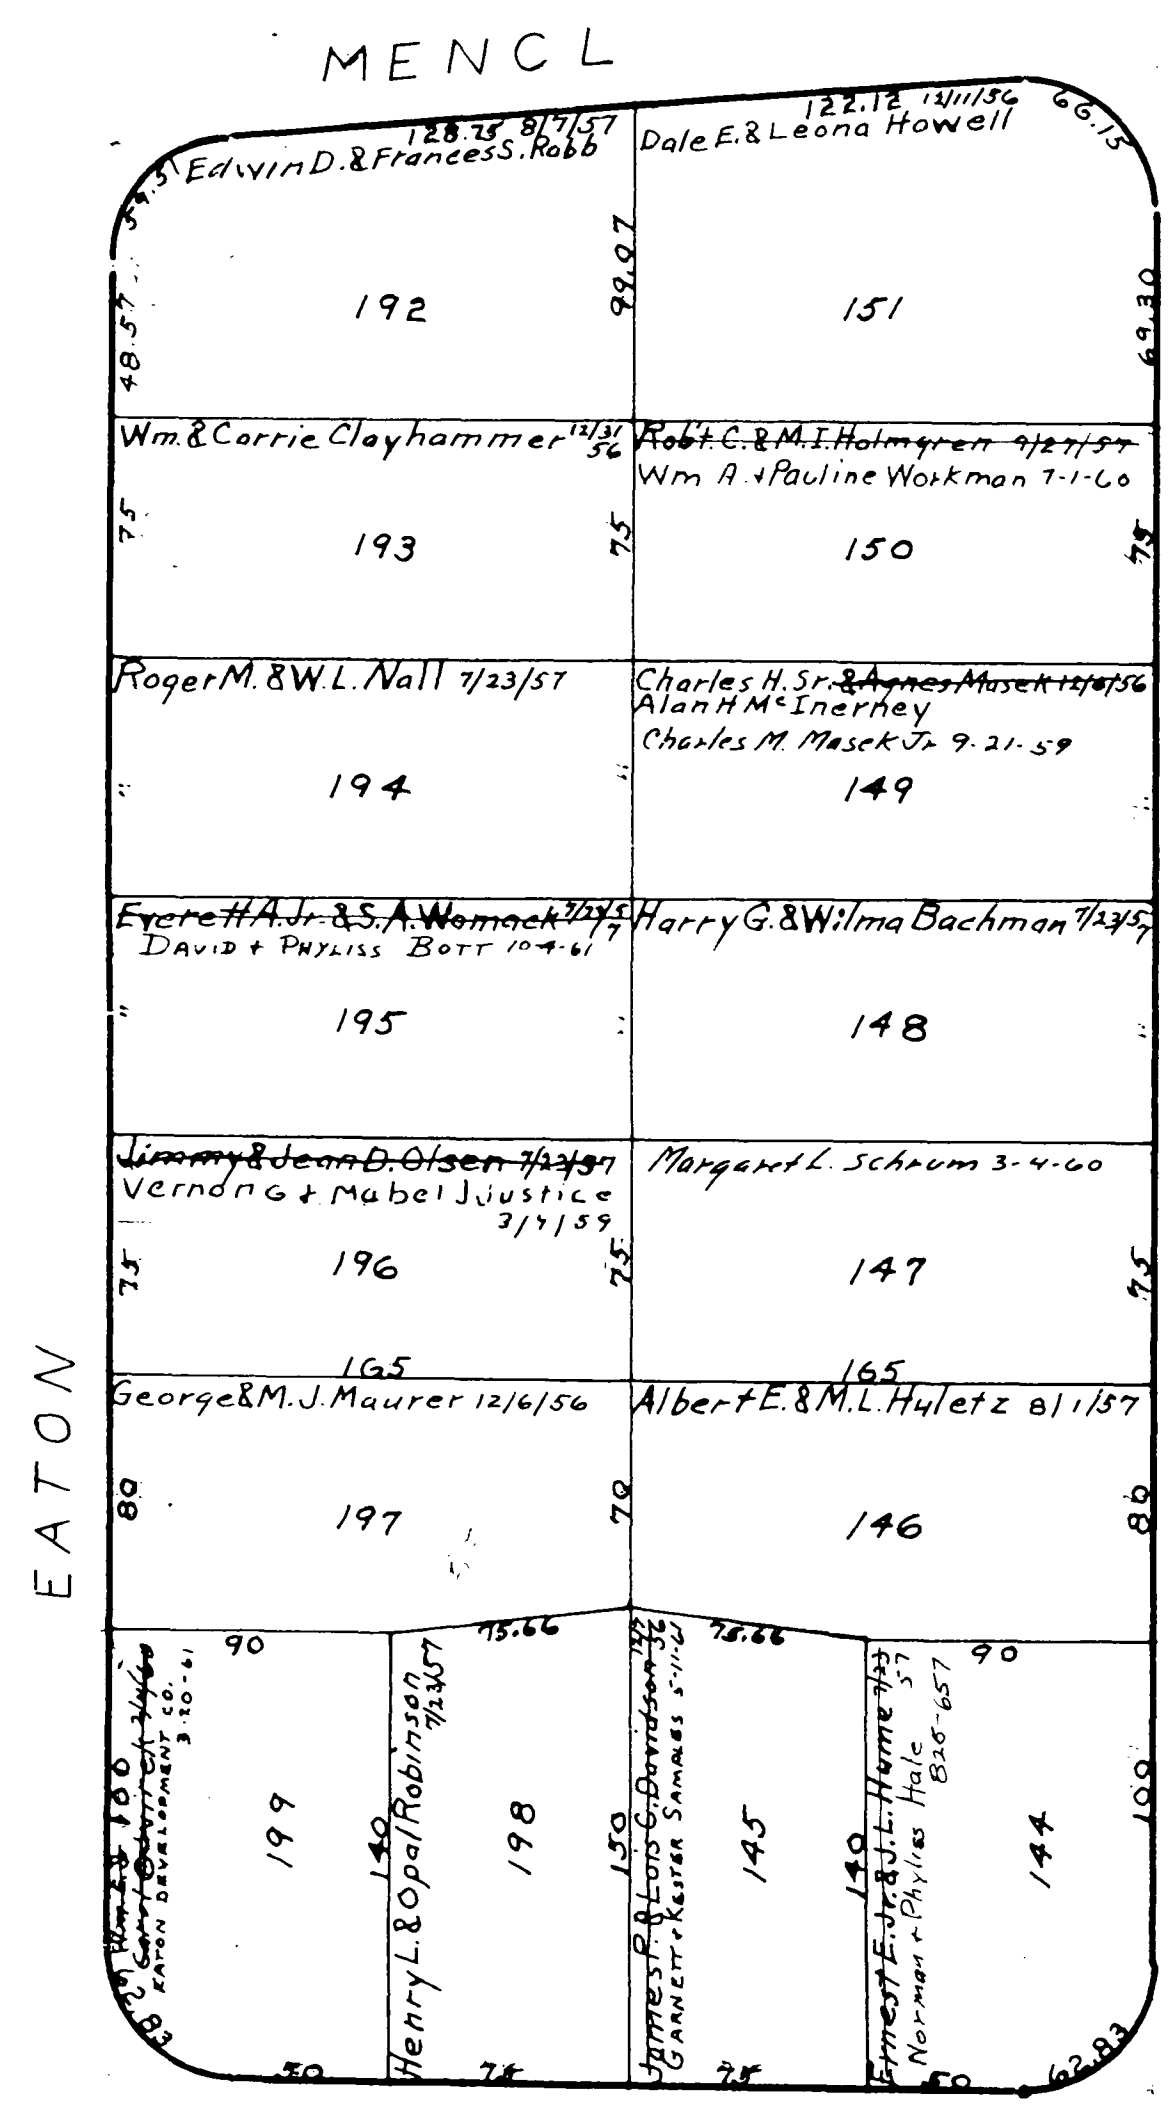 MENCL
128.75 8/7/57
Edwin D. & Frances S. Robb
59.51
48.57
192
99.97
122.12 12/11/56
66.15
Dale E. & Leona Howell
151
69.30
Wm. & Corrie Clayhammer 12/31 56
75
193
75
Rob't. C. & M. I. Holmgren 9/27/57
Wm A. + Pauline Workman 7-1-60
150
75
Roger M. & W. L. Nall 7/23/57
"
194
"
Charles H. Sr. & Agnes Masek 12/6/56
Alan H McInerney
Charles M. Masek Jr 9-21-59
149
"
Everett A. Jr. & S. A. Womack 7/23/57
DAVID + PHYLISS BOTT 10-4-61
"
195
"
Harry G. & Wilma Bachman 7/23/57
148
"
Jimmy & Jean D. Olsen 7/23/57
Vernon G + Mabel J Justice
3/4/59
75
196
75
165
Margaret L. Schrum 3-4-60
147
75
165
EATON
George & M. J. Maurer 12/6/56
80
197
70
Albert E. & M. L. Huletz 8/1/57
146
80
90
100
EATON DEVELOPMENT CO.
3-20-61
199
62.83
50
75.66
140
Henry L. & Opal Robinson
7/23/57
198
75
75.66
150
James P. & Lois C. Davidson 56
GARNETT + KESTER SAMPLES 5-11-61
145
75
90
140
Ernest E. Jr. & J. L. Hume 7/23 57
Norman + Phyliss Hale
826-657
144
100
50
62.83